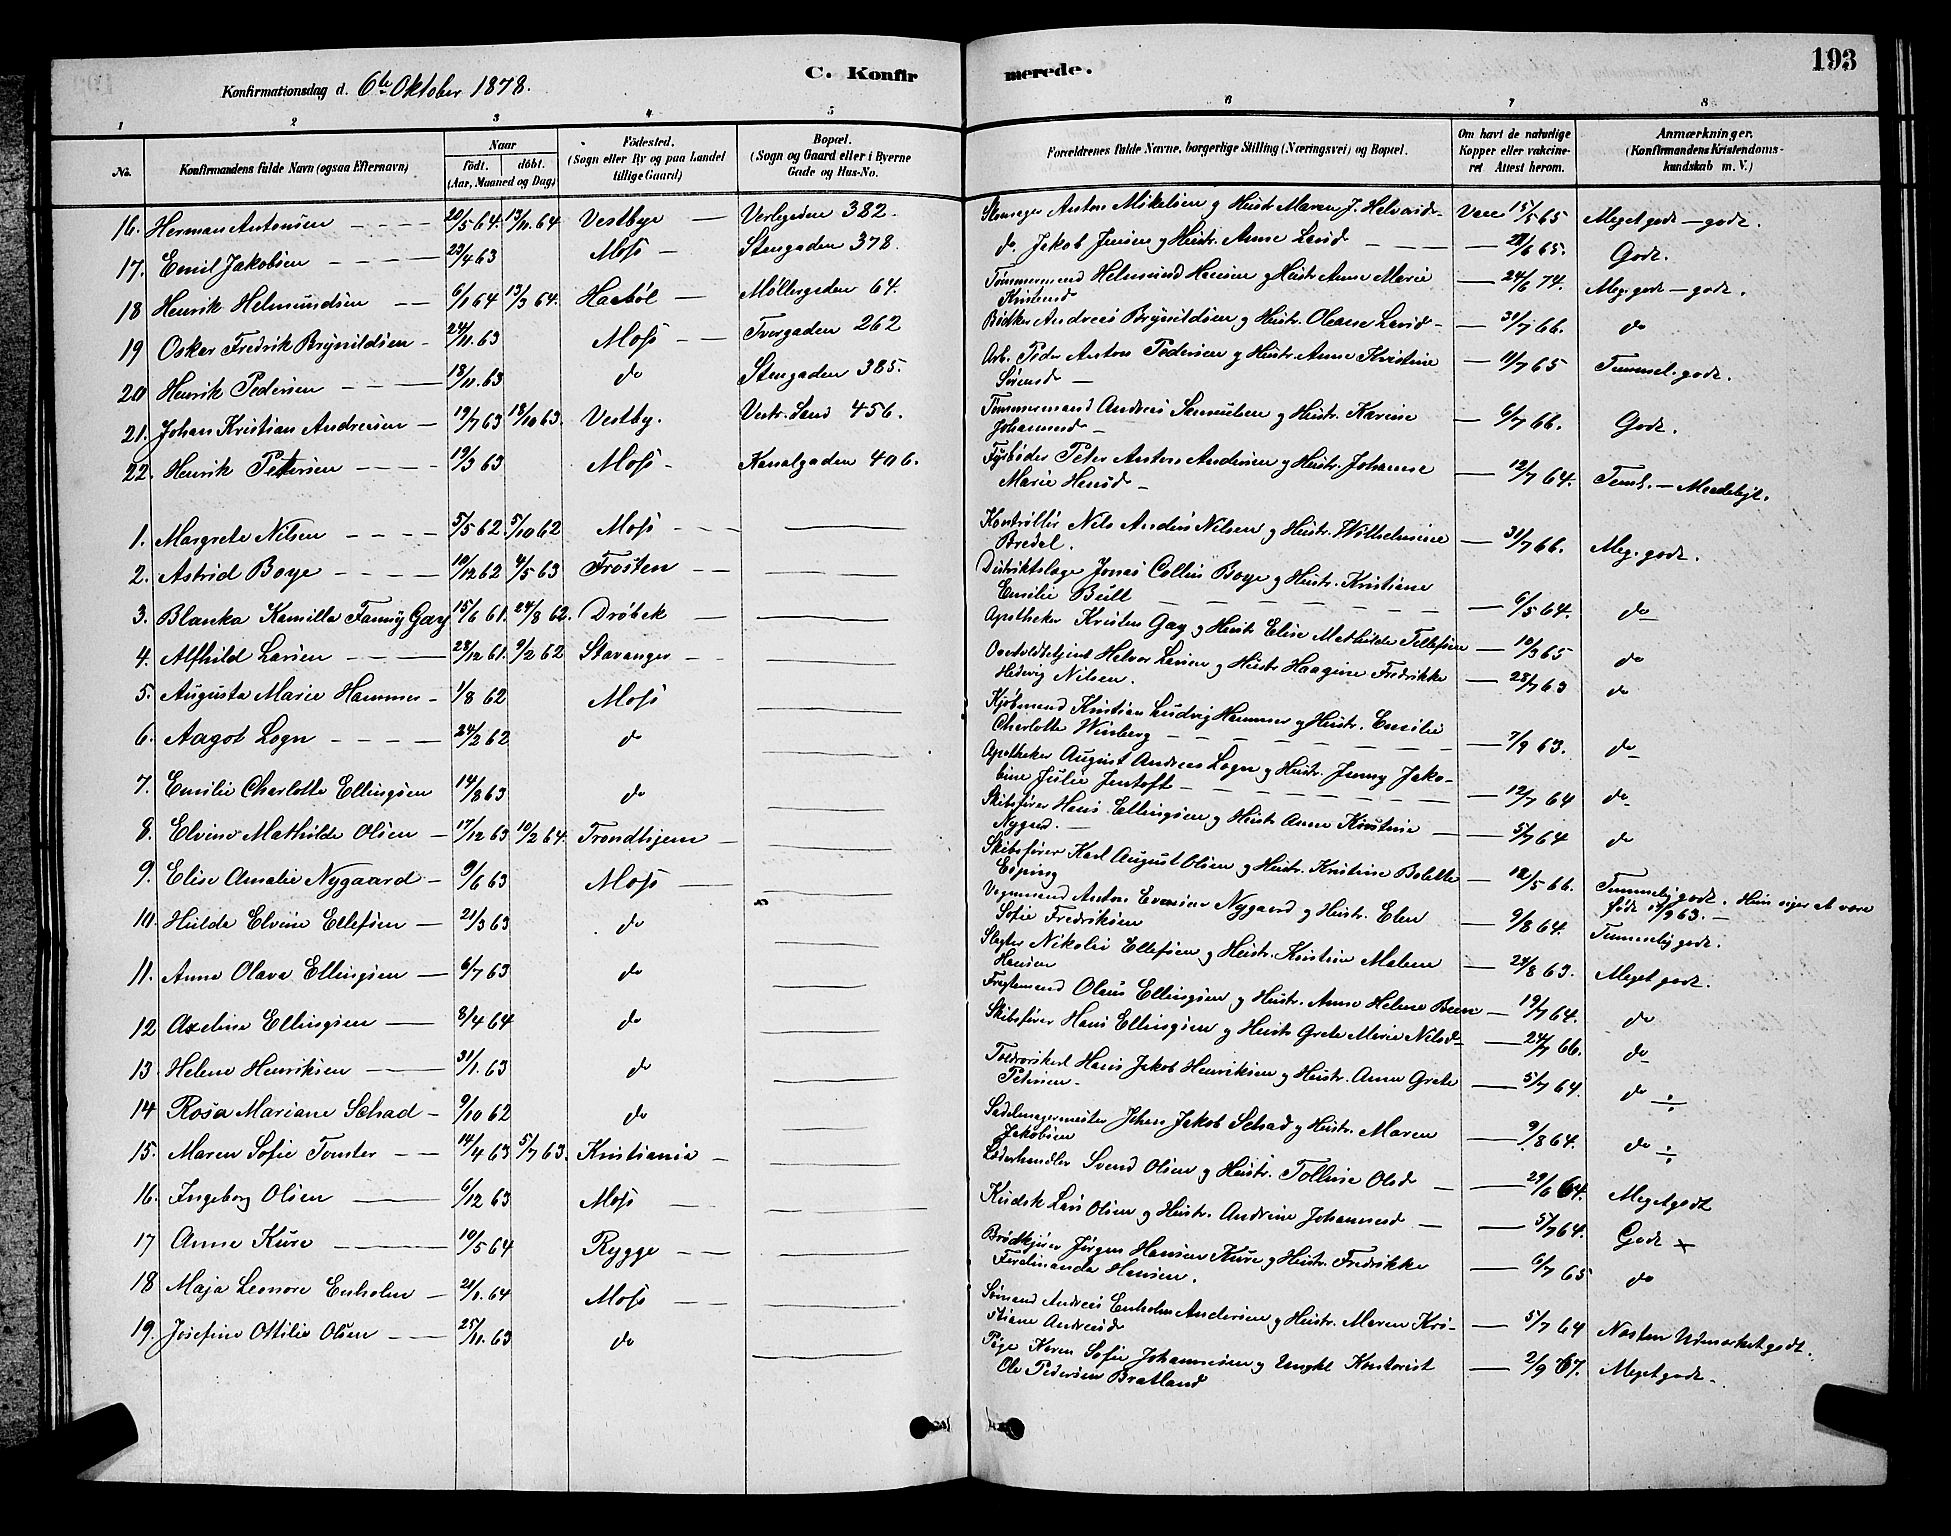 193
Konfirmationsdag d. 6te Oktober 1878.
C. Konfirmerede.
1 2 3 4 5 6 7 8
No. Konfirmandens fulde Navn (ogsaa Efternavn) Naar født. døbt. (Aar, Maaned og Dag) Fødested. (Sogn eller By og paa Landet tillige Gaard) Bopæl. (Sogn og Gaard eller i Byerne Gade og Hus-No. Forældrenes fulde Navne, borgerlige Stilling (Næringsvei) og Bopæl. Om havt de naturlige Kopper eller vaccineret Attest herom. Anmærkninger. (Konfirmandens Kristendomskundskab m. V.)
16. Herman Antonsen 20/5 64. 13/11 64 Vestbye Verlegaden 382. Anton Mikelsen g Hustr Maren J. Vacc 15/5 65 Meget godt – godt.
17. Emil Jakobsen 23/4 63 Moss Stengaden 378. do. Jakob Jensen g Hustr. Anne Larsd 28/6 65. Godt.
18 Henrik Helmundsen 6/1 64 13/3 64. Haabøl Møllergaden 64. Tømmermand Helmund Hansen g Hustr Anne Marie Kristensd 24/6 74. Meg. godt – godt.
19 Oskar Fredrik Brynildsen 24/11. 63 Moss Tvergaden 262 Bødker Andreas Brynildsen g Hustr. Oleane Larsd 31/7 66. do
20 Henrik Pedersen 18/11. 63 do Stengaden 385. Arb. Peder Anton Pedersen g Hustr Anne Kristine Sørensd 11/7 65 Temmel. godt.
21. Johan Kristian Andresen 19/7 63 18/10 63. Vestby. Vestr. Sand 456. Tømmermand Andreas Samuelsen g Hustr. Karine Johannesd 6/7 66. Godt.
22. Henrik Petersen 19/3 63 Moss Kanalgaden 406. Fyrbøder Peter Anton Andersen g Hustr. Johanne Marie Hansd 12/7 64. Teml. – Maadeligt.
1. Margrete Nilsen 5/5 62. 5/10 62 Moss Kontrollør Nils Anders Nilsen g Hustr. Wilhelmine Bredal. 31/7 66. Meg. godt.
2. Astrid Boye 10/12 62 4/5 63 Frosten Distriktslæge Jonas Collin Boye g Hustr. Kristiane Emilie Bull 6/5 64. do
3. Blanka Kamilla Fanny Gay 15/6 61. 24/8 62. Drøbak Apotheker Kristen Gay g Hustr Elise Mathilde Tellefsen 10/3 65 do
4. Alfhild Larsen 28/12 61. 9/2 62 Stavanger Halvor Larsen g Hustr Haagine Fredrikke Hedvig Nilsen. 28/7 63 do
5. Augusta Marie Hammer 1/8 62 Moss Kjøbmand Kristian Ludvig Hammer g Hustr. Emilie Charlotte Winberg 7/9 63. do
6. Aagot Logn 24/2 62 do Apotheker August Andreas Logn g Hustr. Jenny Jakobine Julie Jentoft 12/7 64 do
7. Emilie Charlotte Ellingsen 14/8 63 do Skibsfører Hans Ellingsen g Hustr Anne Kirstine Nygaard. 5/7 64 do
8. Elvine Mathilde Olsen 17/12 63 10/2 64. Trondhjem Skibsfører Karl August Olsen g Hustr. Kristine Bolette Esping 12/5 66. Temmelig godt. Hun siger at være født 17/9 63.
9. Elise Amalie Nygaard 9/6 63 Moss Vognmand Anton Evensen Nygaard g Hustr. Elen Sofie Fredriksen 9/8 64. Temmelig godt.
10. Hulda Elvine Ellefsen 21/3 63 do Slagter Nikolai Ellefsen g Hustr. Kirstine Malene Hansen 24/8 63. Meget godt.
11. Anna Olava Ellingsen 6/7 63 do Fragtemand Olaus Ellingsen g Hustr. Anne Helene Been 19/7 64. do
12 Axeline Ellingsen 8/4 64 do Skibsfører Hans Ellingsen g Hustr Grete Marie Nilsd 24/7 66. do
13. Helene Henriksen 31/1. 63 do Hans Jakob Henriksen g Hustr. Anne Grete Petersen 5/7 64. do ÷
14 Rosa Mariane Schad 9/10 62 do Sadelmagermester Johan Jakob Schad g Hustr. Maren Jakobsen 9/8 64. do ÷
15. Maren Sofie Tomter 14/4 63 5/7 63. Kristiania Læderhandler Svend Olsen g Hustr. Tolline Olsd 29/6 64. Meget godt
16. Ingeborg Olsen 6/12 63 Moss Kudsk Lars Olsen g Hustr. Andrine Johannesd 5/7 64. Godt x
17 Anne Kure 10/5 64 Rygge Brødkjører Jørgen Hansen Kure g Hustr. Fredrikke Ferdinanda Hansen. 6/7 65 do
18 Maja Leonore Enholm 21/1. 64 Moss Sømand Andreas Enholm Andersen g Hustr. Maren Kristiane Andreasd 5/7 64 Næsten Udmærket godt.
19. Josefine Ottilie Olsen 25/11. 63 do Pige Karen Sofie Johannesen g Ungkl Kontorist Ole Pedersen Bratland 2/9 67. Meget godt.